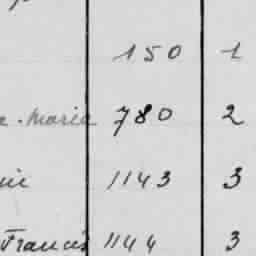 150 1
a. maria 780 2
1143 3
Francis 1144 3